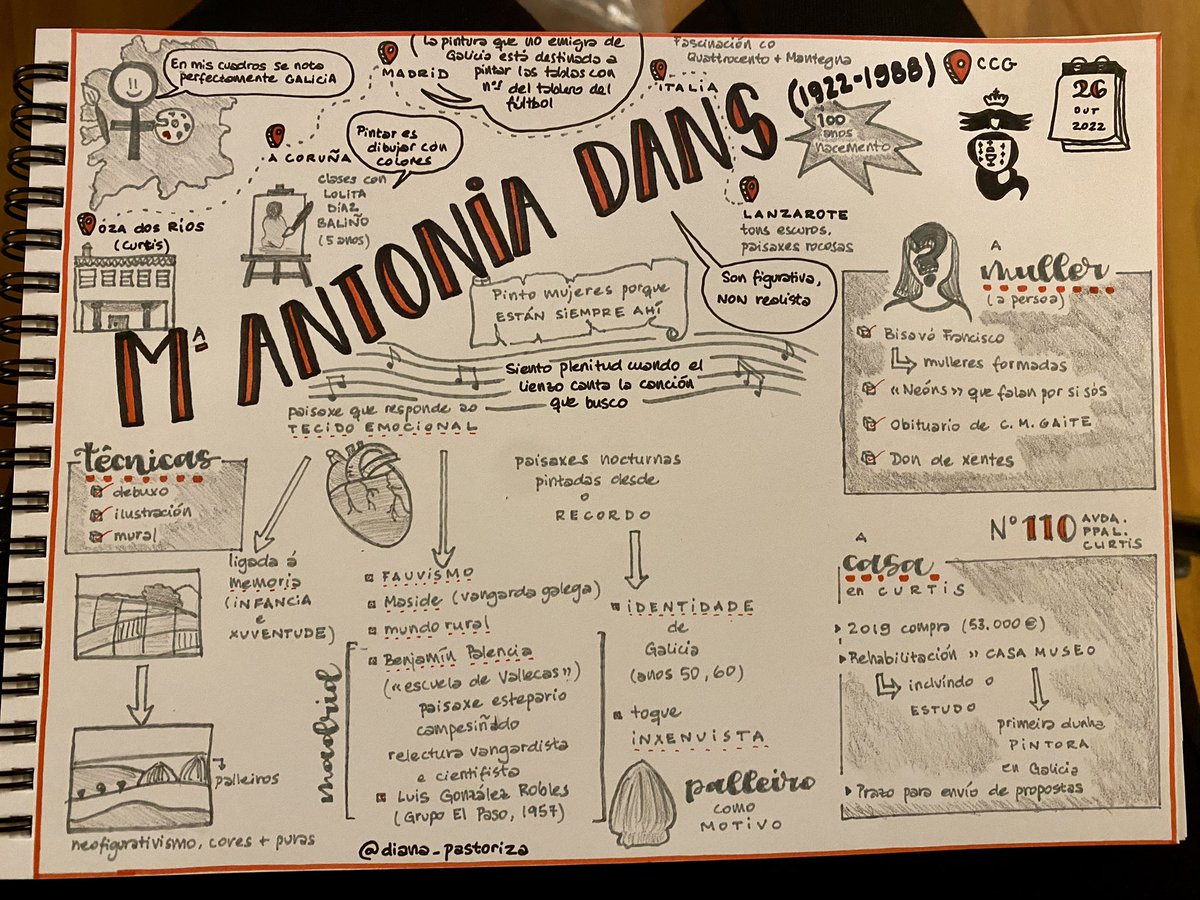 En mis cuadros se nota
perfectamente GALICIA
MADRID
(La pintura que no emigra de
Galicia está destinada a
pintar las tablas con
nºs del tablero del
fútbol
Fascinación co
Quattrocento + Mantegna
ITALIA
(1922-1988)
CCG
26
OUT
2022
100
anos
nacemento
A CORUÑA
Pintar es
dibujar con
colores
clases con
LOLITA
DÍAZ
BALIÑO
(5 anos)
OZA DOS RÍOS
(Curtis)
Mª ANTONIA DANS
LANZAROTE
tons escuros,
paisaxes rocosas
Son figurativa,
NON realista
Pinto mujeres porque
ESTÁN SIEMPRE AHÍ
Siento plenitud cuando el
lienzo canta la canción
que busco
A
muller
(a persoa)
Bisavó Francisco
mulleres formadas
«Neóns» que falan por si sós
Obituario de C. M. GAITE
Don de xentes
paisaxe que responde ao
TECIDO EMOCIONAL
técnicas
debuxo
ilustración
mural
ligada á
memoria
(INFANCIA
e
XUVENTUDE)
palleiros
neofigurativismo, cores + puras
FAUVISMO
Maside (vangarda galega)
mundo rural
madrid
Benjamín Palencia
(«escuela de Vallecas»)
paisaxe estepario
campesiñado
relectura vangardista
e cientifista
Luis González Robles
(Grupo El Paso, 1957)
paisaxes nocturnas
pintadas desde
o
RECORDO
IDENTIDADE
de
Galicia
(anos 50, 60)
toque
INXENUISTA
palleiro
como
MOTIVO
Nº 110 AVDA.
PPAL.
CURTIS
A
casa
en CURTIS
2019 compra (53.000 €)
Rehabilitación » CASA MUSEO
incluíndo o
ESTUDO
primeira dunha
PINTORA
en Galicia
Prazo para envío de propostas
@diana_pastoriza